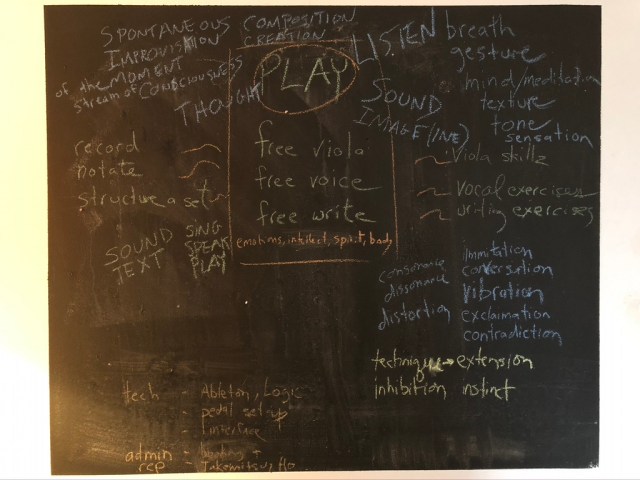 SPONTANEOUS COMPOSITION
IMPROVISATION CREATION
of the MOMENT
stream of CONSCIOUSNESS
THOUGHT
PLAY
LISTEN breath
gesture
mind/meditation
SOUND texture
IMAGE(INE) tone
sensation
record
notate
structure a set
free viola
free voice
free write
emotions, intellect, spirit, body
viola skillz
vocal exercises
writing exercises
SOUND
TEXT
SING
SPEAK
PLAY
consonance
dissonance
distortion
immitation
conversation
vibration
exclaimation
contradiction
technique → extension
inhibition instinct
tech - Ableton, Logic
- pedal set-up
- interface
admin - booking +
rep - Takemitsu,